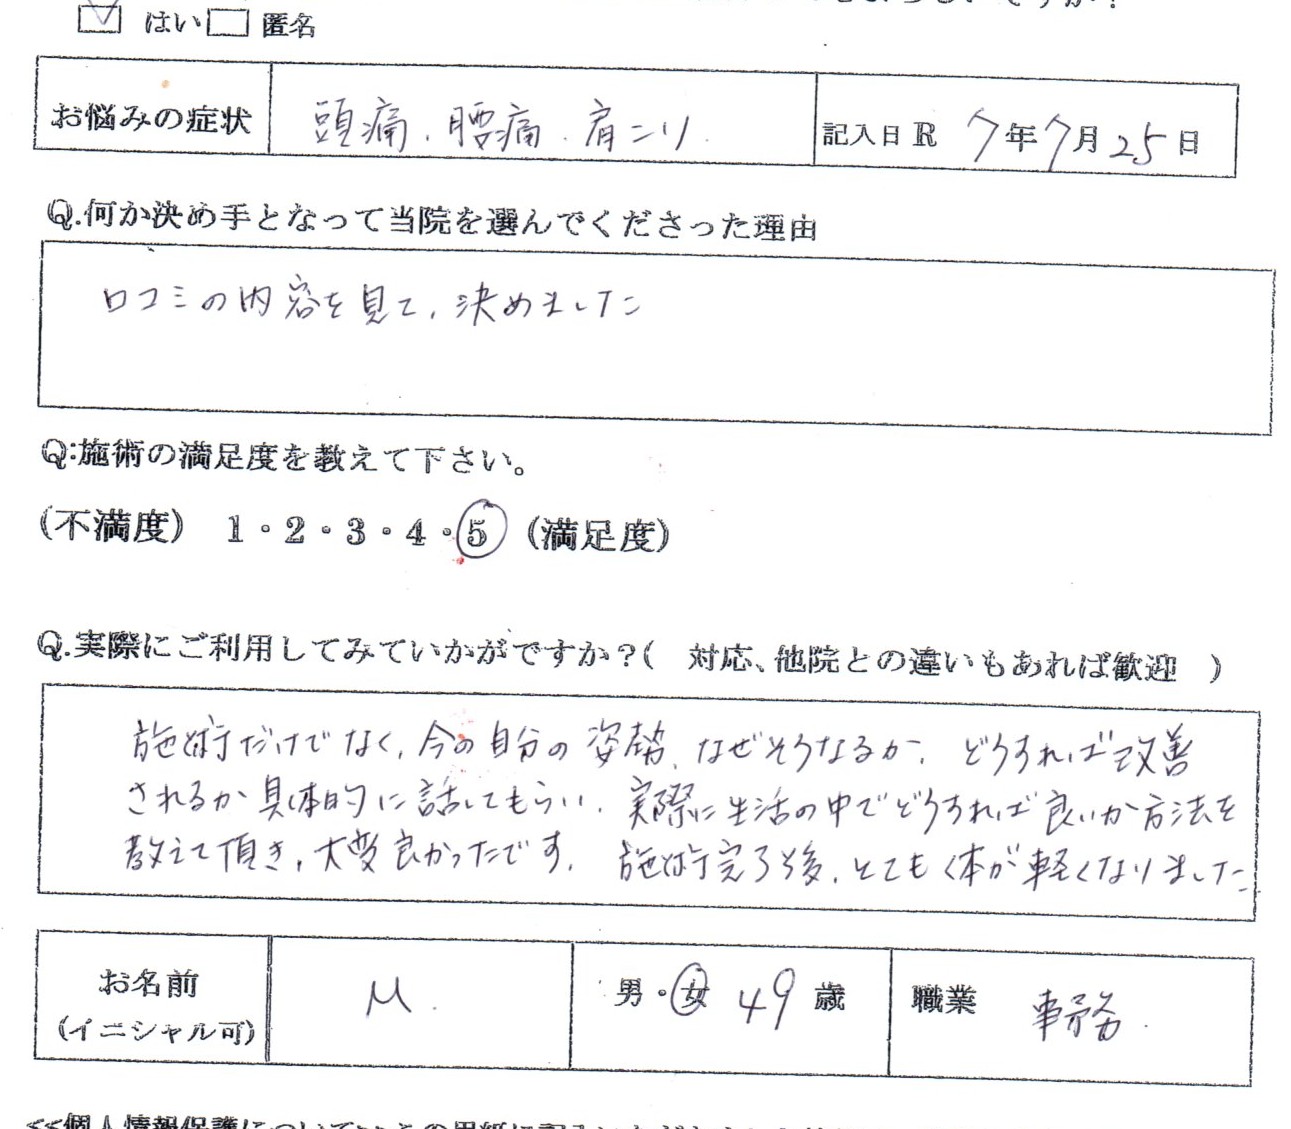 ☑ はい □ 匿名
お悩みの症状 頭痛、腰痛、肩こり 記入日 R 7年7月25日
Q.何か決め手となって当院を選んでくださった理由
口コミの内容を見て、決めました
Q:施術の満足度を教えて下さい。
(不満度) 1・2・3・4・5 (満足度)
Q.実際にご利用してみていかがですか?( 対応、他院との違いもあれば歓迎 )
施術だけでなく、今の自分の姿勢、なぜそうなるか、どうすれば改善
されるか具体的に話してもらい、実際に生活の中でどうすれば良いか方法を
教えて頂き、大変良かったです。施術完了後、とても体が軽くなりました
お名前 M. 男・女 49歳 職業 事務
(イニシャル可)